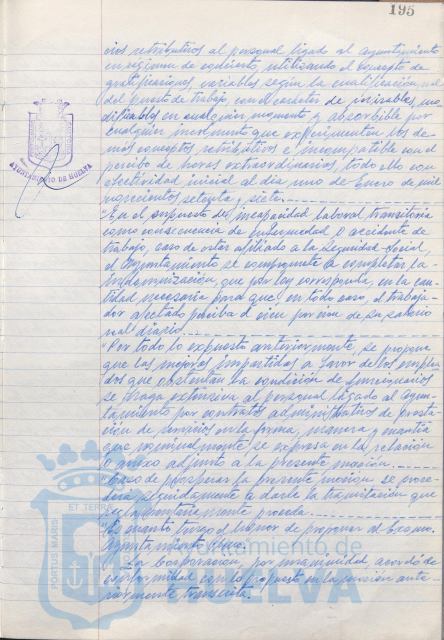 195
cios retributivos al personal ligado al ayuntamiento
en régimen de contrato, utilizando el concepto de
gratificaciones, variables según la cualificación
del puesto de trabajo, con el carácter de revisables, mo
dificables en cualquier momento y absorbible por
cualquier incremento que experimenten los de-
más conceptos retributivos e incompatible con el
percibo de horas extraordinarias, todo ello con
efectividad inicial al día uno de Enero de mil
novecientos setenta y siete.
"En el supuesto de incapacidad laboral transitoria
como consecuencia de enfermedad o accidente de
trabajo, caso de estar afiliado a la Seguridad Social,
el Ayuntamiento se compromete a completar la
indemnización, que por ley corresponda, en la can-
tidad necesaria para que en todo caso, el trabaja-
dor afectado perciba el cien por cien de su salario
real diario.
"Por todo lo expuesto anteriormente, se propone
que las mejoras impartidas a favor de los emplea
dos que ostentan la condición de funcionarios
se haga extensiva al personal ligado al ayun-
tamiento por contratos administrativos de presta-
ción de servicios en la forma, manera y cuantía
que nominalmente se expresa en la relación
o anexo adjunto a la presente moción.
"Caso de prosperar la presente moción se proce-
derá seguidamente a darle la tramitación que
reglamentariamente proceda.
"Es cuanto tengo el honor de proponer al Excmo.
Ayuntamiento Pleno.
La Corporación, por unanimidad acordó de
conformidad con lo propuesto en la moción ante
riormente transcrita.
AYUNTAMIENTO DE HUELVA
PORTUS MARIS ET TERRAE
Ayuntamiento de
HUELVA